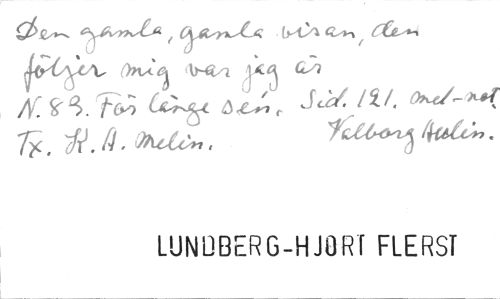 Den gamla, gamla visan, den
följer mig var jag är
N. 83. För länge sén. Sid. 121. mel-not.
Tx. K. A. Melin. Valborg Aulin.
LUNDBERG-HJORT FLERST